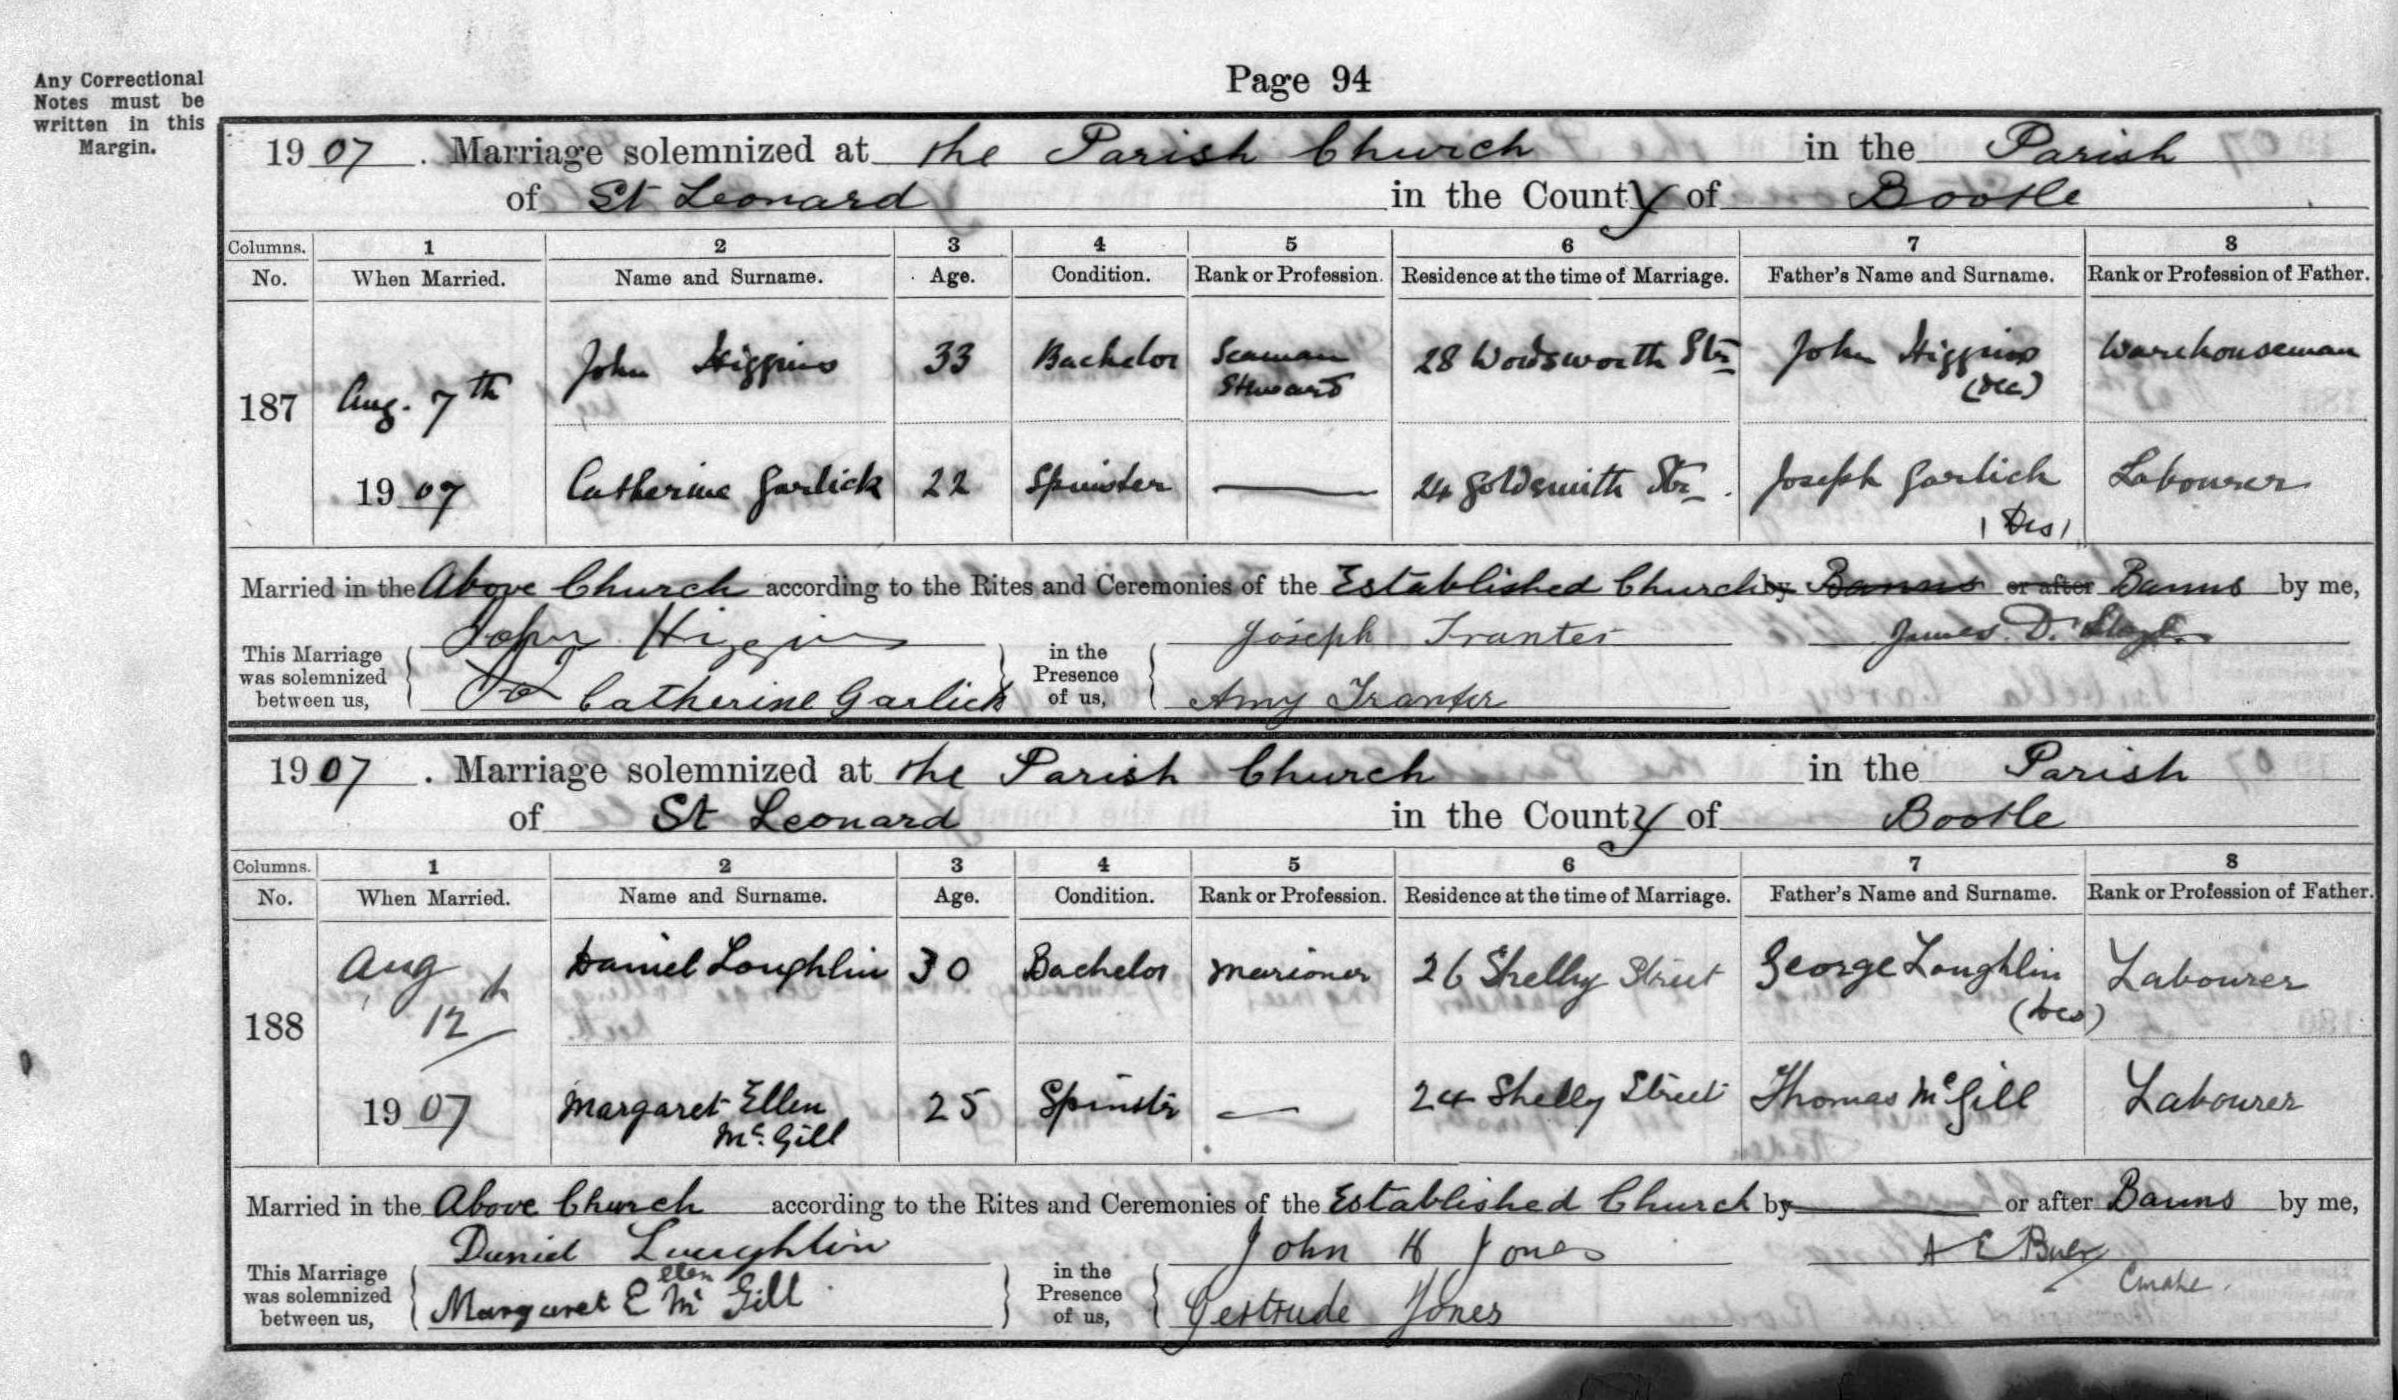 Page 94
Any Correctional
Notes must be
written in this
Margin.
1907. Marriage solemnized at the Parish Church in the Parish
of St Leonard in the County of Bootle
Columns. 1 2 3 4 5 6 7 8
No. When Married. Name and Surname. Age. Condition. Rank or Profession. Residence at the time of Marriage. Father's Name and Surname. Rank or Profession of Father.
187 Aug. 7th John Higgins 33 Bachelor Seaman Steward 28 Wordsworth Str John Higgins (Dec) Warehouseman
1907 Catherine Garlick 22 Spinster — 24 Goldsmith Str. Joseph Garlick (Des) Labourer
Married in the Above Church according to the Rites and Ceremonies of the Established Church by Banns or after Banns by me,
This Marriage was solemnized between us, John Higgins in the Presence of us, Joseph Tranter James D.
Catherine Garlick Amy Tranter
1907. Marriage solemnized at the Parish Church in the Parish
of St Leonard in the County of Bootle
Columns. 1 2 3 4 5 6 7 8
No. When Married. Name and Surname. Age. Condition. Rank or Profession. Residence at the time of Marriage. Father's Name and Surname. Rank or Profession of Father.
188 Aug 12th Daniel Loughlin 30 Bachelor Marioner 26 Shelly Street George Loughlin (Dec) Labourer
1907 Margaret Ellen McGill 25 Spinstr — 24 Shelly Street Thomas McGill Labourer
Married in the Above Church according to the Rites and Ceremonies of the Established Church by — or after Banns by me,
This Marriage was solemnized between us, Daniel Loughlin in the Presence of us, John H Jones A E
Margaret E ellen Mc Gill Gertrude Jones